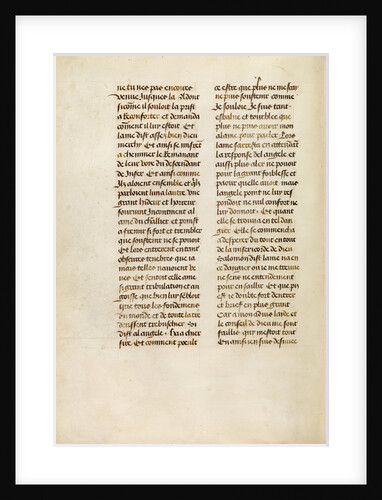 ne tu nes pas encores
venue jusques la Adont
sicomme il souloit la prist
a Reconforter et demanda
comment il luy estoit Et
lame dist assez bien dieu
mercy Et ainsi se misrent
a cheminer le Remanant
de leur voye du descendant
de Infer Et ainsi comme
Ilz aloient ensemble et quilz
parloient lun a lautre Vne
grant hideur et horreur
sourvint Incontinent al
ame du chlr et prinst
a fremir si fort et trembler
que soustenir ne se pouoit
Et lors entrerent en tant
obscures tenebres que ia
mais telles nauoient ve
ues Et sentoit celle ame
si grant tribulation et an
goisse que bien luy sembloit
que tous les fondemens
du monde et de toute la tre
deussent tresbuschier Lors
dist al angele Ha a chier
sire Et comment peult
ce estre que plus ne me say
ne puis soustenir comme
Je souloie Je suis tant
esbahie et tourblee que
plus ne puis auoir mon
alaine pour parler Lors
lame sarresta en attendant
la response del angele et ainsi
plus aler ne pouoit
pour la grant foiblesse et
paour quelle auoit mais
langele point ne luy res
pondoit ne nul confort ne
luy donnoit Et quant
elle se trouua en tel dan
gier Elle se commencha
a desperer du tout en tout
de la misericorde de dieu
Salomon dist lame na en
ce dangier ou ie me treuue
ne scens ne entendement
pour en saillir Et que pis
est Je doubte fort dentrer
et brief en plus grant
Car a mon aduis layde et
le conseil de dieu me sont
faillis quy mestoit tout
En ainsi en suis desmise